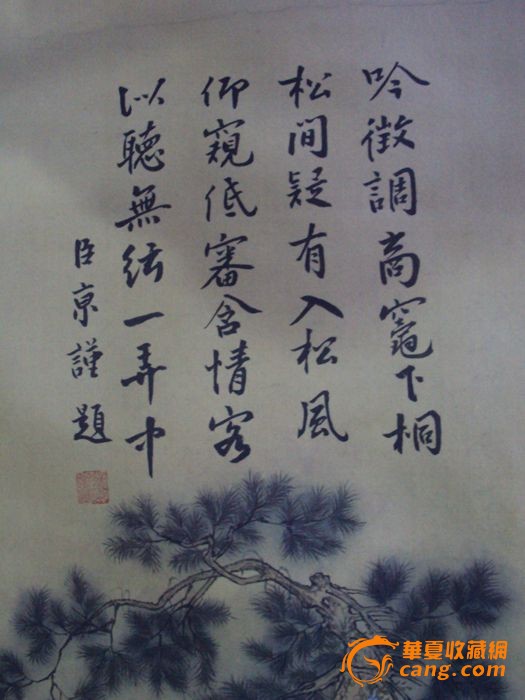 吟徵調商竈下桐
松間疑有入松風
仰窺低審含情客
以聽無絃一弄中
臣京謹題
華夏收藏網
cang.com